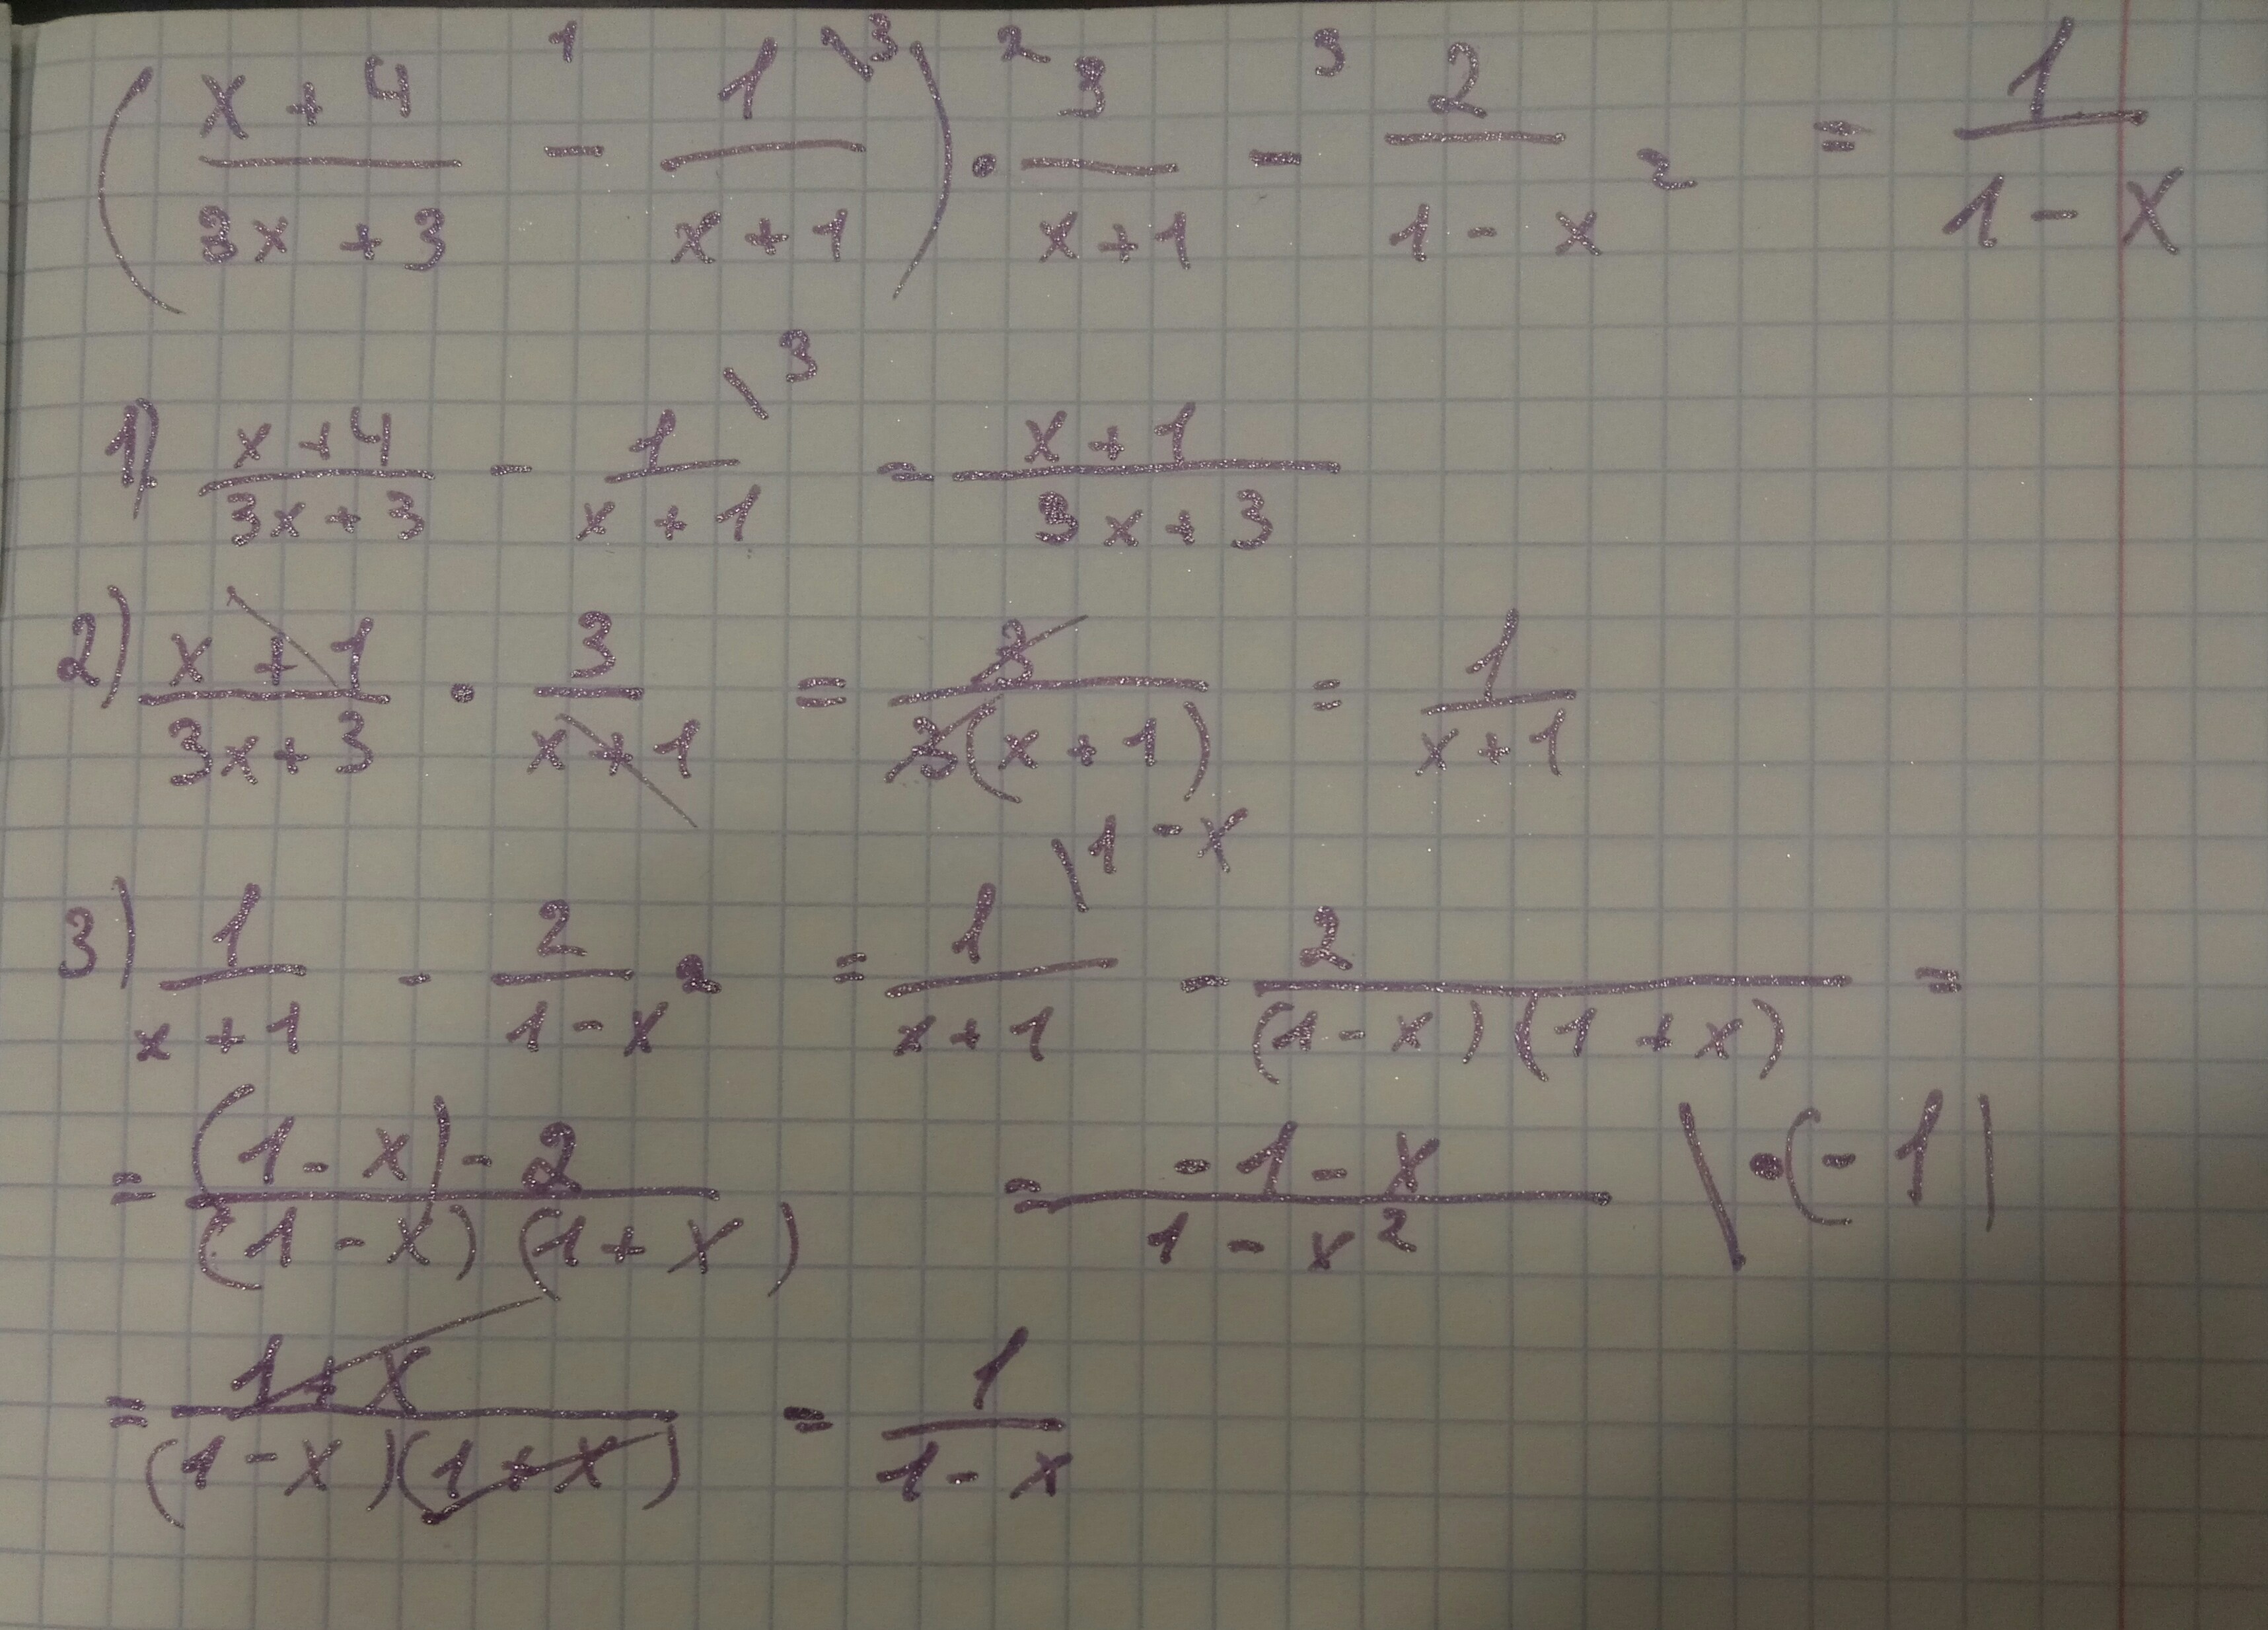 ( (x+4)/(3x+3) -¹ 1/(x+1) \3 ) ·² 3/(x+1) -³ 2/(1-x²) = 1/(1-x)
1) (x+4)/(3x+3) - 1/(x+1) \3 = (x+1)/(3x+3)
2) (x+1)/(3x+3) · 3/(x+1) = 3/(3(x+1)) = 1/(x+1)
3) 1/(x+1) - 2/(1-x²) = 1/(x+1) \1-x - 2/((1-x)(1+x)) =
= ((1-x)-2)/((1-x)(1+x)) = (-1-x)/(1-x²) | ·(-1|
= (1+x)/((1-x)(1+x)) = 1/(1-x)